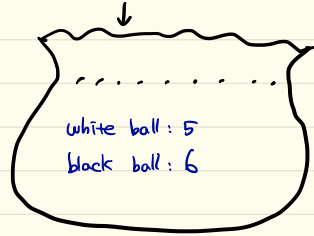 white ball : 5
black ball : 6